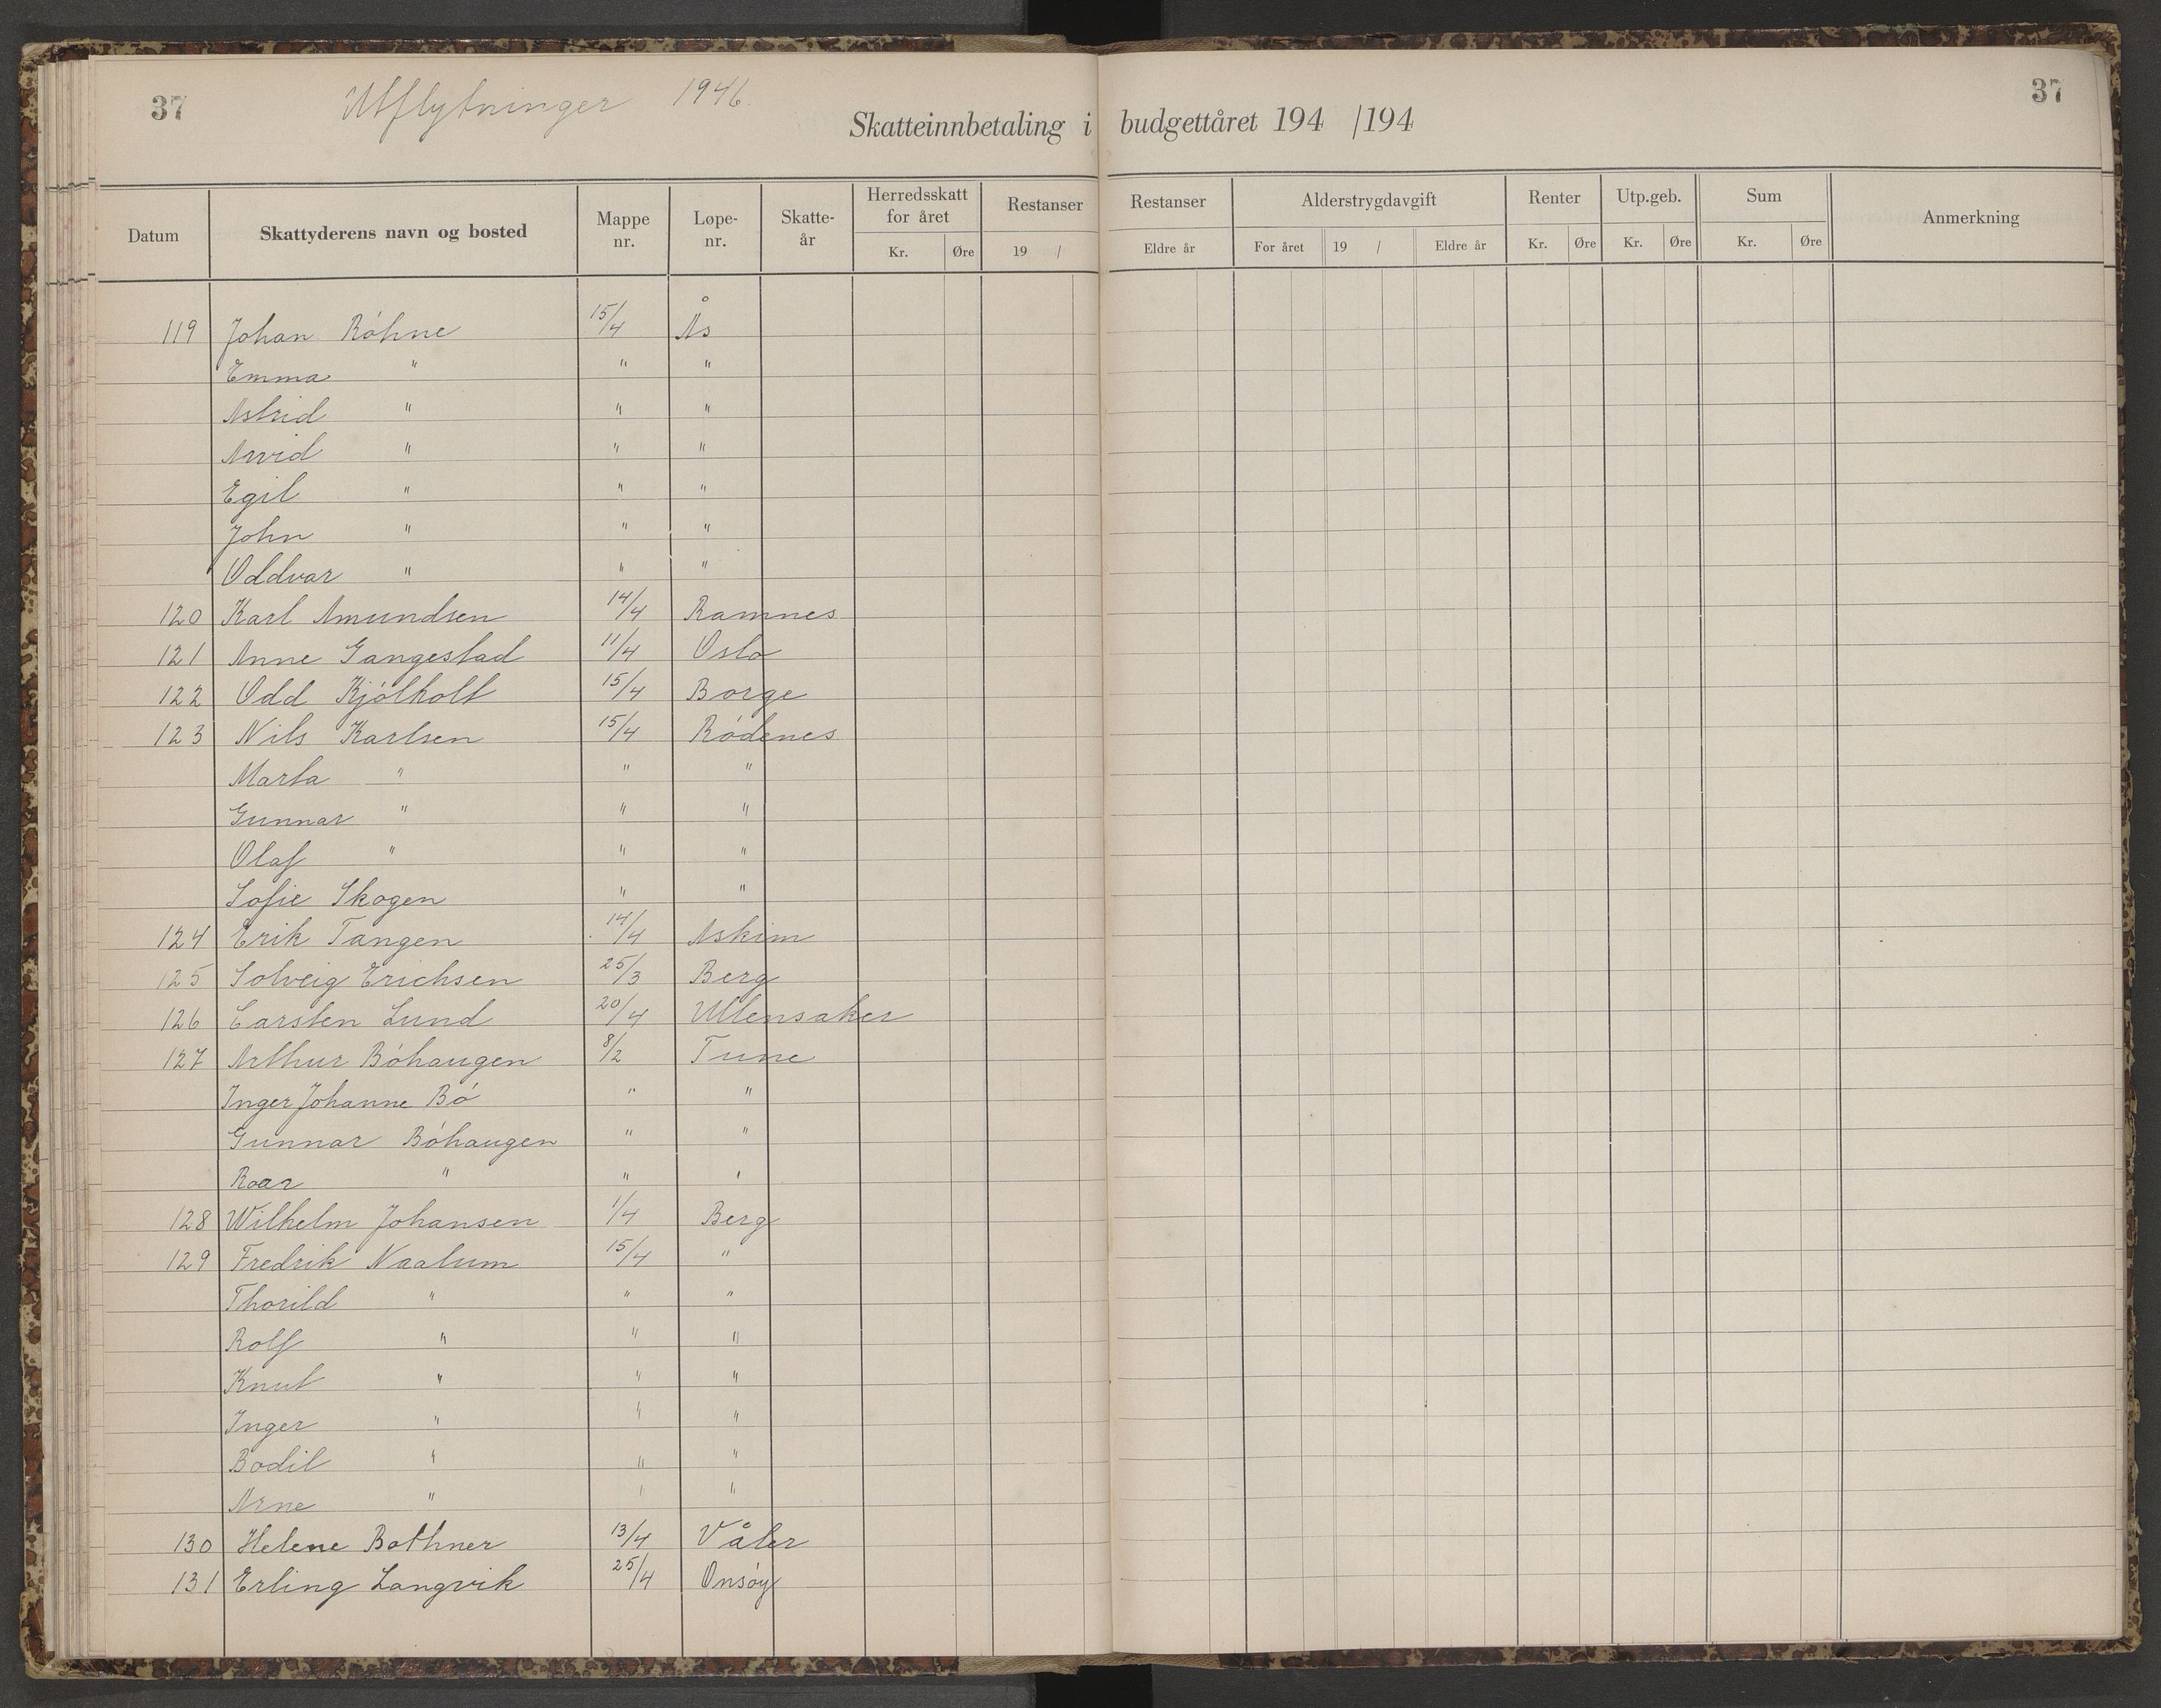 37 Utflytninger 1946. 37
Skatteinnbetaling i budgettåret 194 /194
Datum Skattyderens navn og bosted Mappe nr. Løpe-nr. Skatte-år Herredsskatt for året Kr. Øre Restanser 19 / Restanser Eldre år Alderstrygdavgift For året 19 / Eldre år Renter Kr. Øre Utp.geb. Kr. Øre Sum Kr. Øre Anmerkning
119 Johan Röhne 15/4 Ås
Emma " " "
Astrid " " "
Arvid " " "
Egil " " "
John " " "
Oddvar " " "
120 Karl Amundsen 14/4 Ramnes
121 Anne Gangestad 11/4 Oslo
122 Odd Kjólholt 15/4 Borge
123 Nils Karlsen 15/4 Ródenes
Marta " " "
Gunnar " " "
Olaf " " "
Sofie Skogen " "
124 Erik Tangen 14/4 Askim
125 Solveig Erichsen 25/3 Berg
126 Carsten Lund 20/4 Ullensaker
127 Arthur Bóhaugen 8/2 Tune
Inger Johanne Bó " "
Gunnar Bóhaugen " "
Roar " " "
128 Wilhelm Johansen 1/4 Berg
129 Fredrik Naalum 15/4 "
Thorild " " "
Rolf " " "
Knut " " "
Inger " " "
Bodil " " "
Arne " " "
130 Helene Bothner 13/4 Våler
131 Erling Langvik 25/4 Onsóy